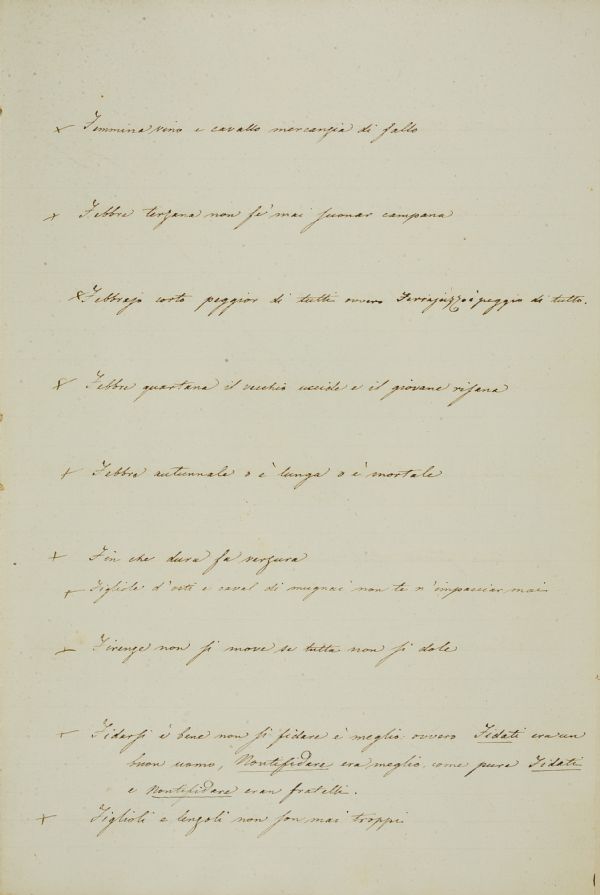 + Femmina vino e cavallo mercanzia di fallo
+ Febbre terzana non fe' mai suonar campana
+ Febbrajo corto peggior di tutti ovvero Ferrajuzzo è peggio di tutto.
+ Febbre quartana il vecchio uccide e il giovane risana
+ Febbre autunnale o è lunga o è mortale
+ Fin che dura fa verzura
+ Figliole d'osti e caval di mugnai non te n'impacciar mai
+ Firenze non si move se tutta non si dole
+ Fidarsi è bene non si fidare è meglio ovvero Fidati era un
buon uomo, Nontifidare era meglio come pure Fidati
e Nontifidare eran fratelli.
+ Figlioli e lenzoli non son mai troppi